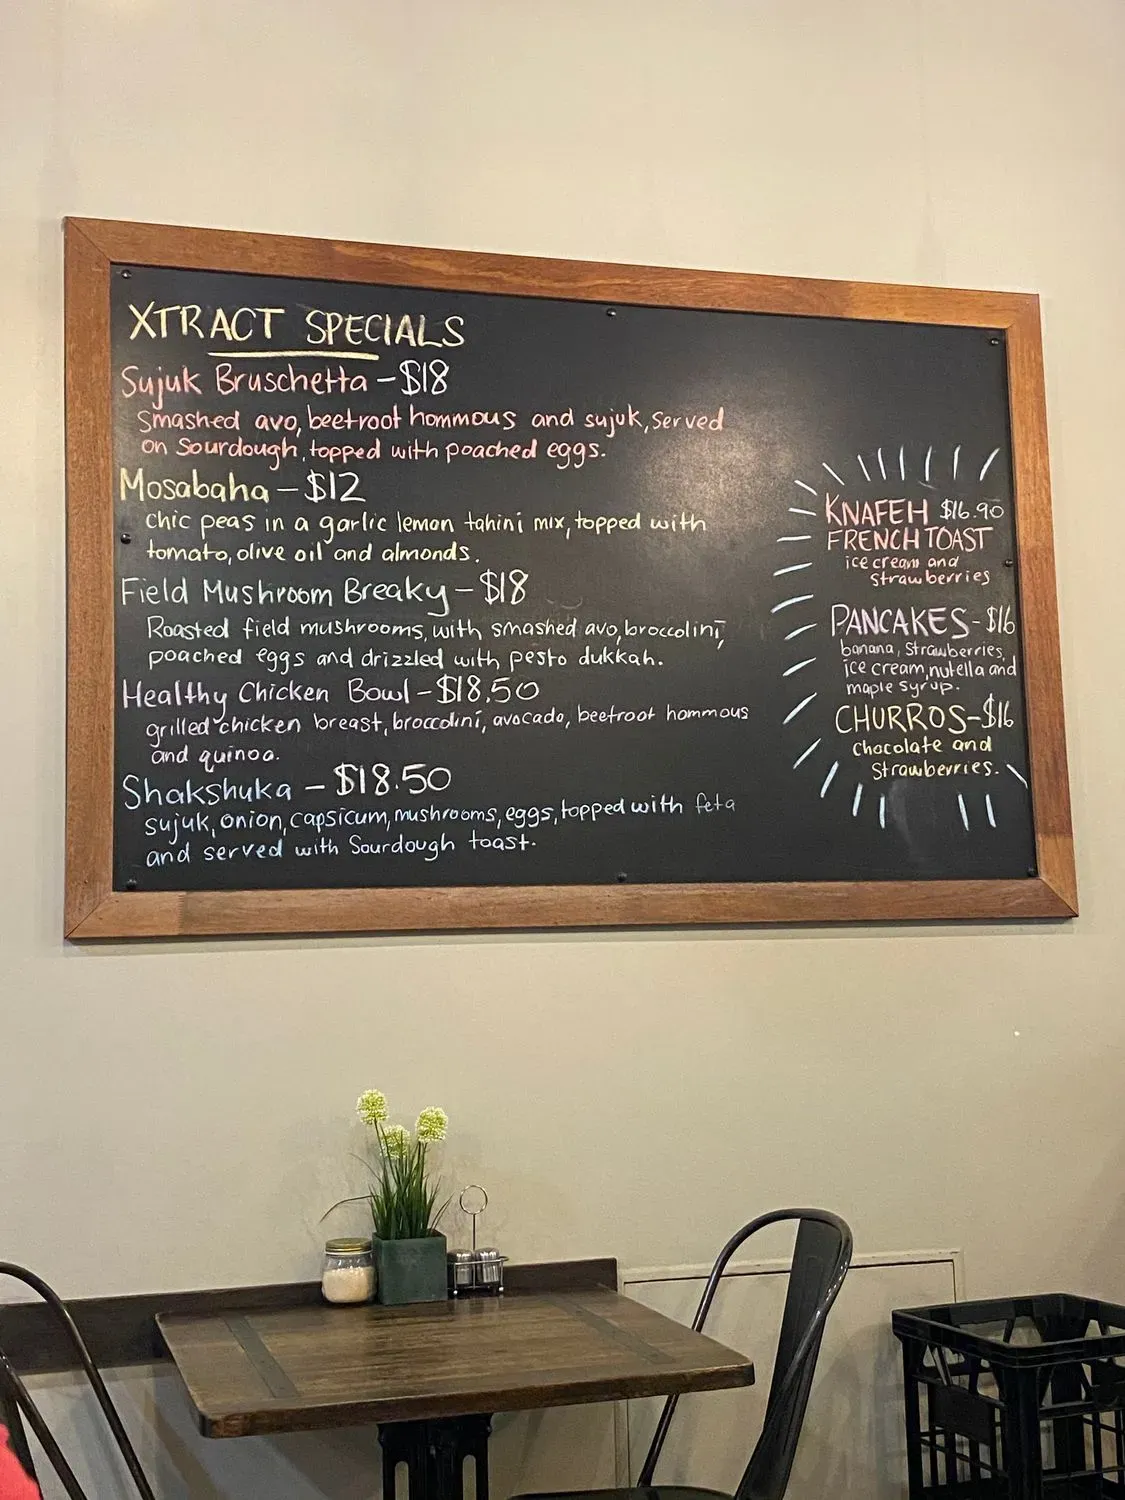 XTRACT SPECIALS
Sujuk Bruschetta - $18
Smashed avo, beetroot hommous and sujuk, served
on Sourdough, topped with poached eggs.
Mosabaha - $12
chic peas in a garlic lemon tahini mix, topped with
tomato, olive oil and almonds.
Field Mushroom Breaky - $18
Roasted field mushrooms, with smashed avo, broccolini,
poached eggs and drizzled with pesto dukkah.
Healthy Chicken Bowl - $18.50
grilled chicken breast, broccolini, avocado, beetroot hommous
and quinoa.
Shakshuka - $18.50
sujuk, onion, capsicum, mushrooms, eggs, topped with feta
and served with Sourdough toast.
KNAFEH $16.90
FRENCH TOAST
ice cream and
strawberries
PANCAKES - $16
banana, strawberries,
ice cream, nutella and
maple syrup.
CHURROS - $16
chocolate and
strawberries.